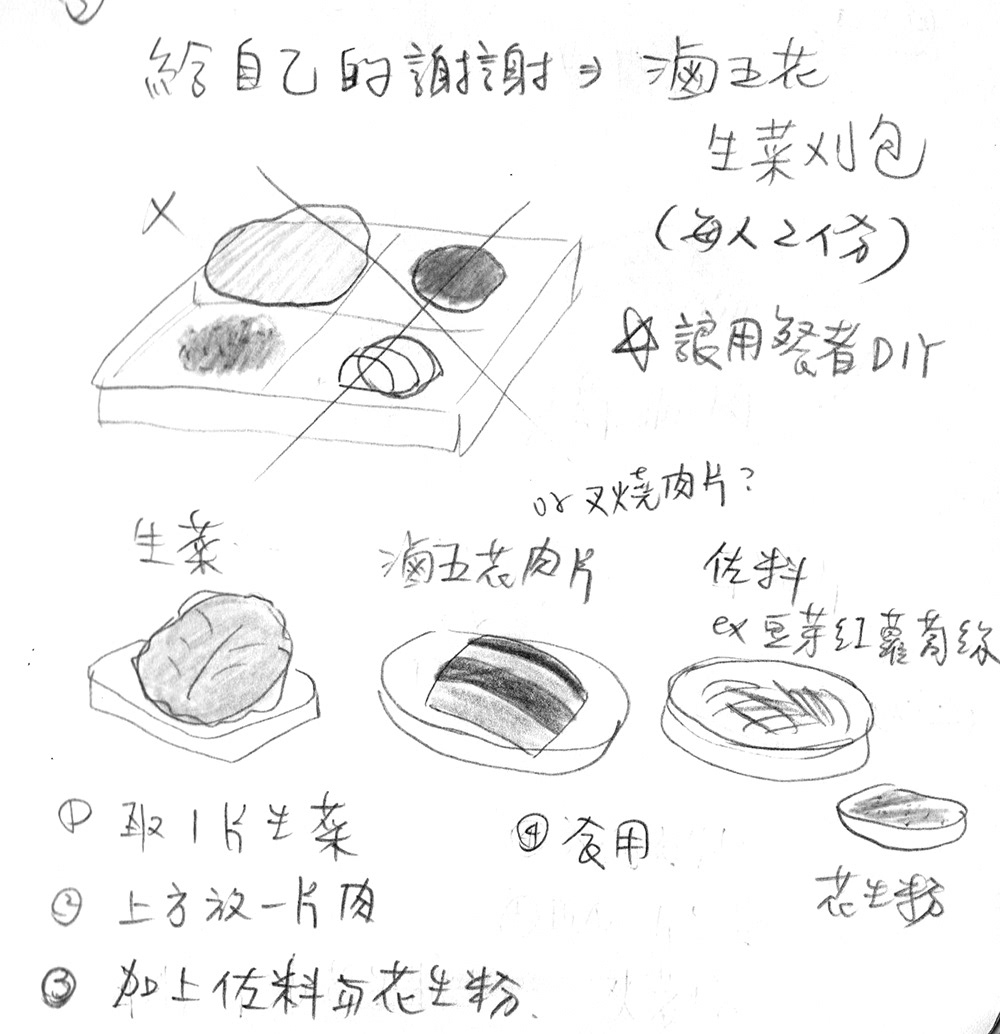 ③
給自己的謝謝⇒滷五花
生菜刈包
(每人2份)
☆讓用餐者DIY
X
or叉燒肉片?
生菜
滷五花肉片
佐料
ex豆芽紅蘿蔔絲
①取1片生菜
②上方放一片肉
③加上佐料與花生粉.
④食用
花生粉